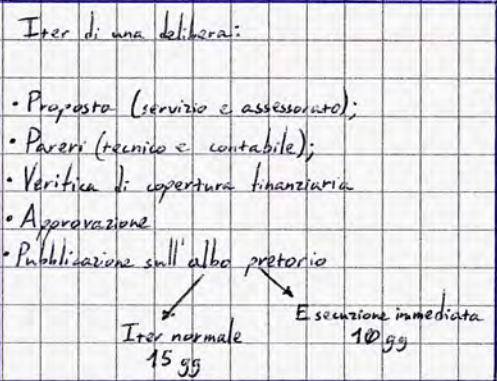 Iter di una delibera:
• Proposta (servizio e assessorato);
• Pareri (tecnico e contabile);
• Verifica di copertura finanziaria
• Approvazione
• Pubblicazione sull'albo pretorio
Iter normale
15 gg
Esecuzione immediata
10 gg